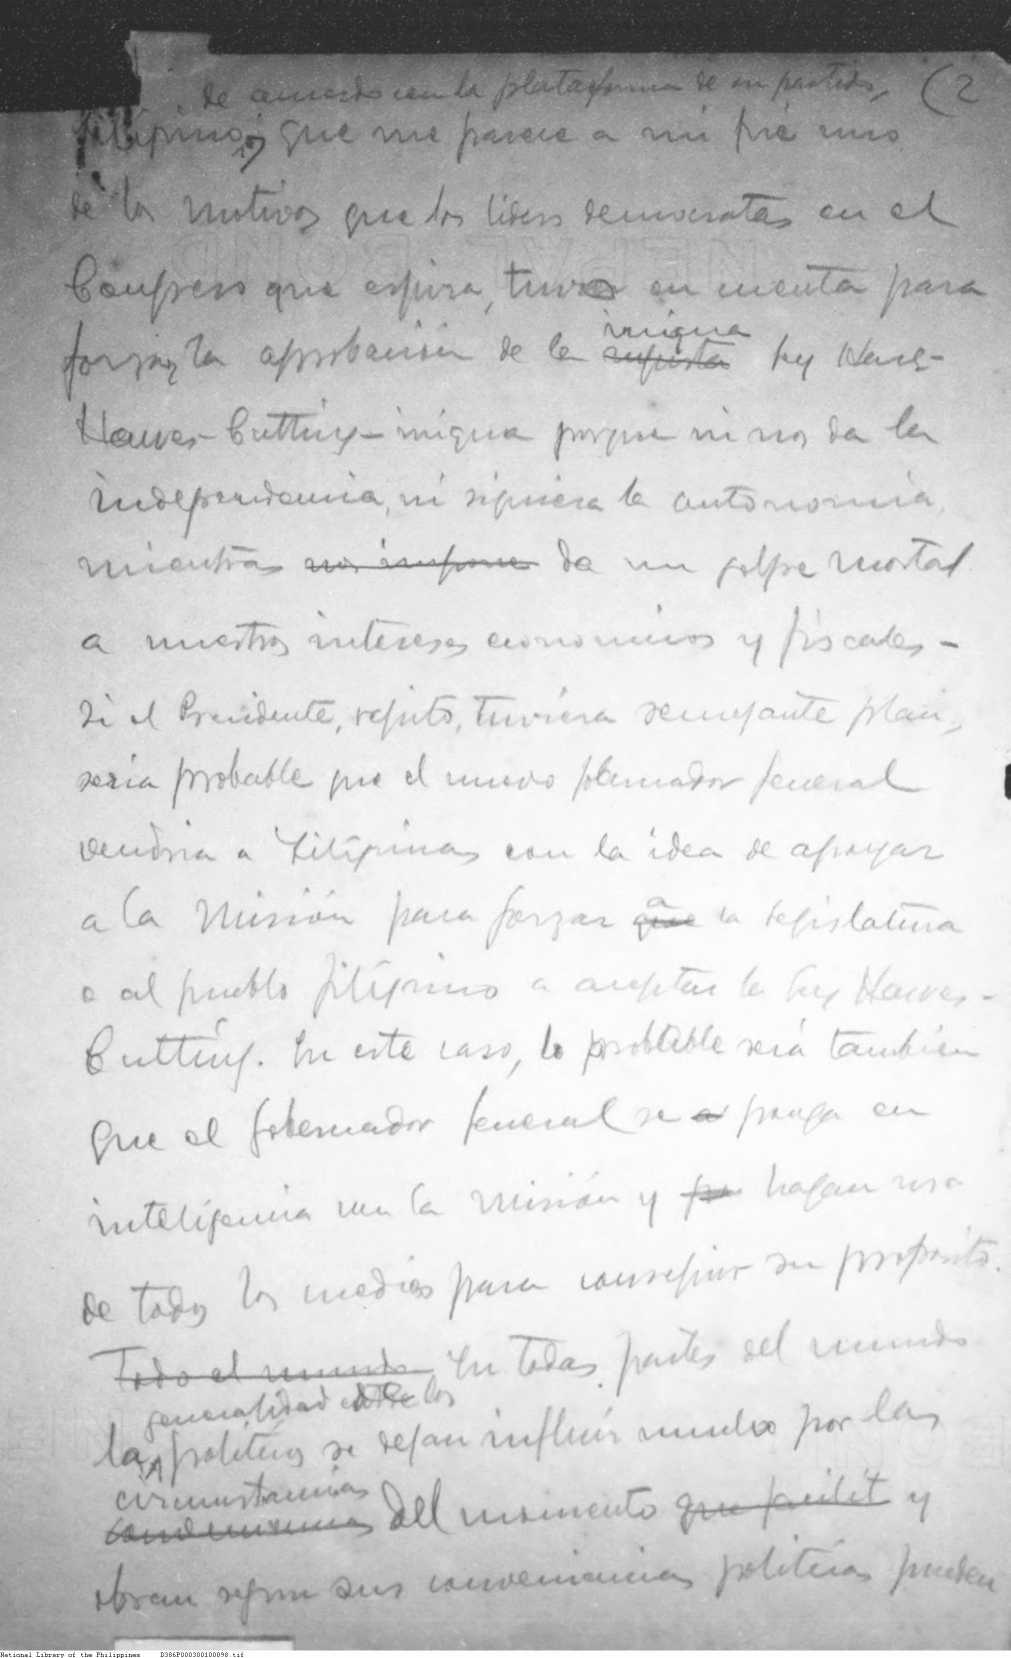 de acuerdo con la plataforma de su partido, (2
filipino, que me parece a mi fué uno
de los motivos que los líders democratas en el
Congreso que espira, tuvo en cuenta para
forzar la aprobación de la inicua
injusta ley Hare-
Hawes-Cutting - inicua porque ni nos da la
independencia, ni siquiera la autonomia,
mientras nos impone da un golpe mortal
a nuestros intereses economicos y fiscales -
Si el Presidente, repito, tuviera semejante plan,
seria probable que el nuevo gobernador general
vendria a Filipinas con la idea de apoyar
a la Misión para forzar que a la legislatura
o al pueblo filipino a aceptar la ley Hawes-
Cutting. En este caso, lo probable será tambien
que el gobernador general se a ponga en
inteligencia con la Misión y hagan uso
de todos los medios para conseguir su proposito.
Todo el mundo En todas partes del mundo
generalidad de los
la politicos se dejan influir mucho por las
circunstancias
conveniencias del momento que y
obran segun sus conveniencias politicas pueden
National Library of the Philippines D386P000300100098.tif